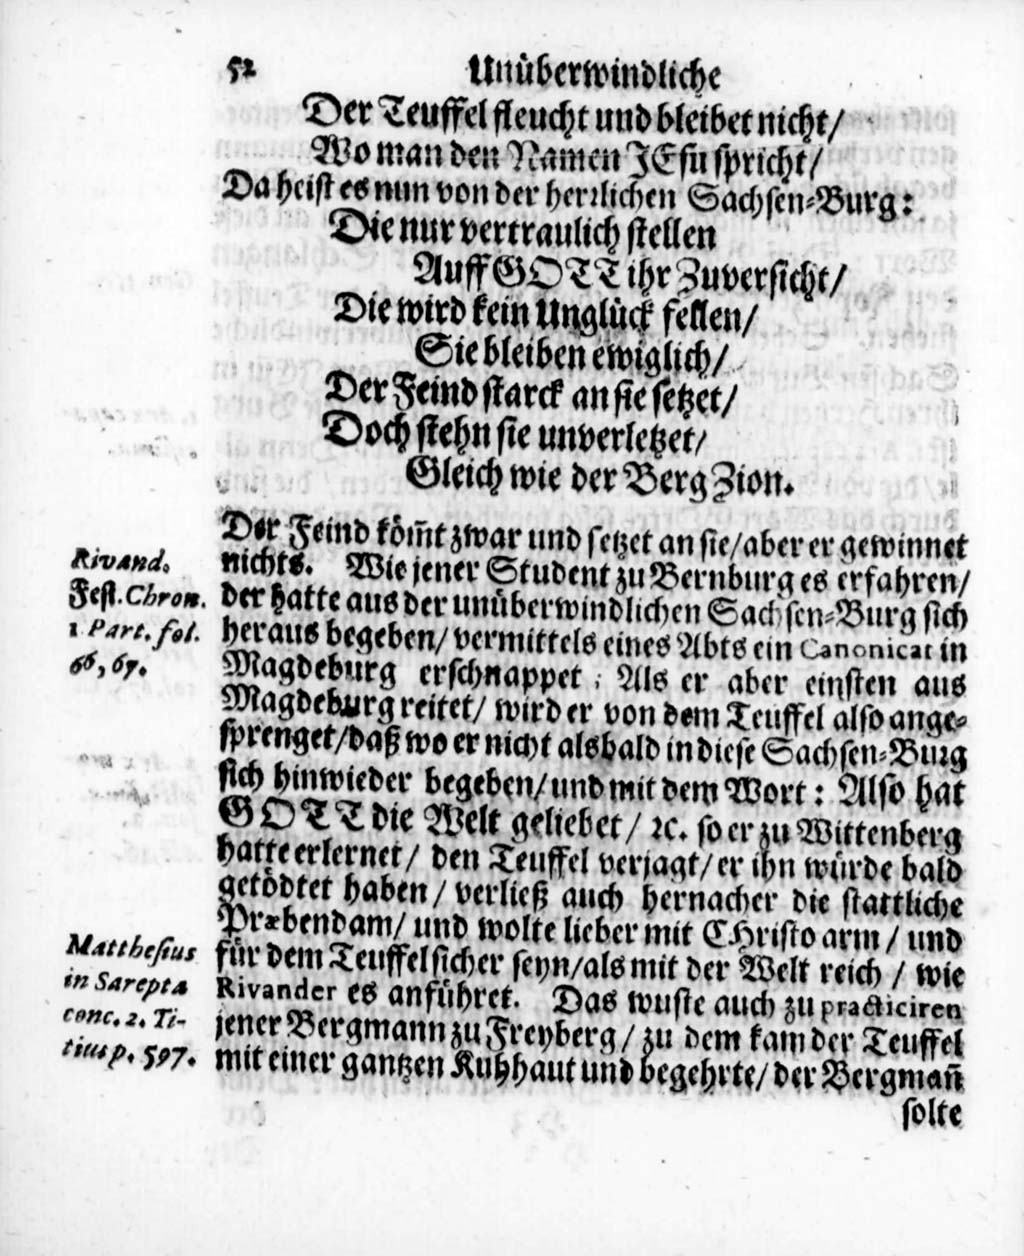 52 Unüberwindliche
Der Teuffel fleucht und bleibet nicht/
Wo man den Namen JEsu spricht/
Da heist es nun von der herꝛlichen Sachsen-Burg:
Die nur vertraulich stellen
Auff GOTT ihr Zuversicht/
Die wird kein Unglück fellen/
Sie bleiben ewiglich/
Der Feind starck an sie setzet/
Doch stehn sie unverletzet/
Gleich wie der Berg Zion.
Der Feind köm̃t zwar und setzet an sie/aber er gewinnet
nichts. Wie jener Student zu Bernburg es erfahren/
der hatte aus der unüberwindlichen Sachsen-Burg sich
heraus begeben/ vermittels eines Abts ein Canonicat in
Magdeburg erschnappet; Als er aber einsten aus
Magdeburg reitet/ wird er von dem Teuffel also ange-
sprenget/daß wo er nicht alsbald in diese Sachsen-Burg
sich hinwieder begeben/ und mit dem Wort: Also hat
GOTT die Welt geliebet/ ꝛc. so er zu Wittenberg
hatte erlernet/ den Teuffel verjagt/ er ihn würde bald
getödtet haben/ verließ auch hernacher die stattliche
Præbendam/ und wolte lieber mit CHristo arm/ und
für dem Teuffel sicher seyn/als mit der Welt reich/ wie
Rivander es anführet. Das wuste auch zu practiciren
jener Bergmann zu Freyberg/ zu dem kam der Teuffel
mit einer gantzen Kuhhaut und begehrte/ der Bergmañ
solte
Rivand.
Fest. Chron.
1 Part. fol.
66, 67.
Matthesius
in Sarepta
conc. 2. Ti-
tius p. 597.